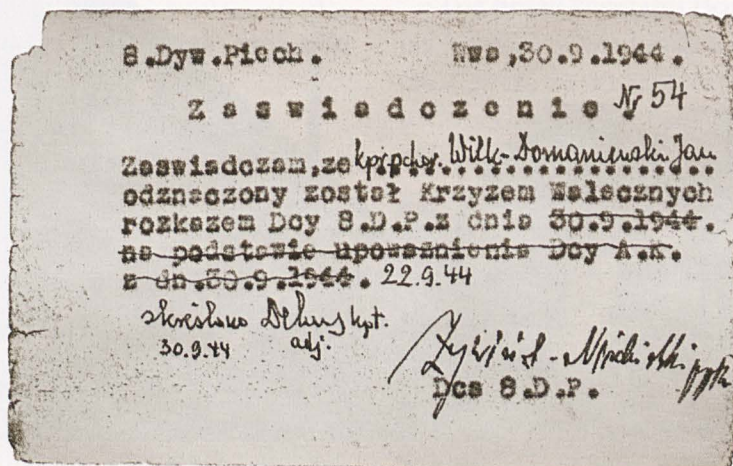 8.Dyw.Piech. Wwa,30.9.1944.
Zaswiadczenie Nr 54
Zaswiadczam,ze kpr.pchor. Wilk-Domaniewski Jan
odznaczony został Krzyzem Walecznych
rozkazem Dcy 8.D.P.z dnia 30.9.1944.
na podstawie upowaznienia Dcy A.K.
z dn.30.9.1944. 22.9.44
skreślono kpt.
30.9.44 adj.
Żywiciel - ppłk
Dca 8.D.P.